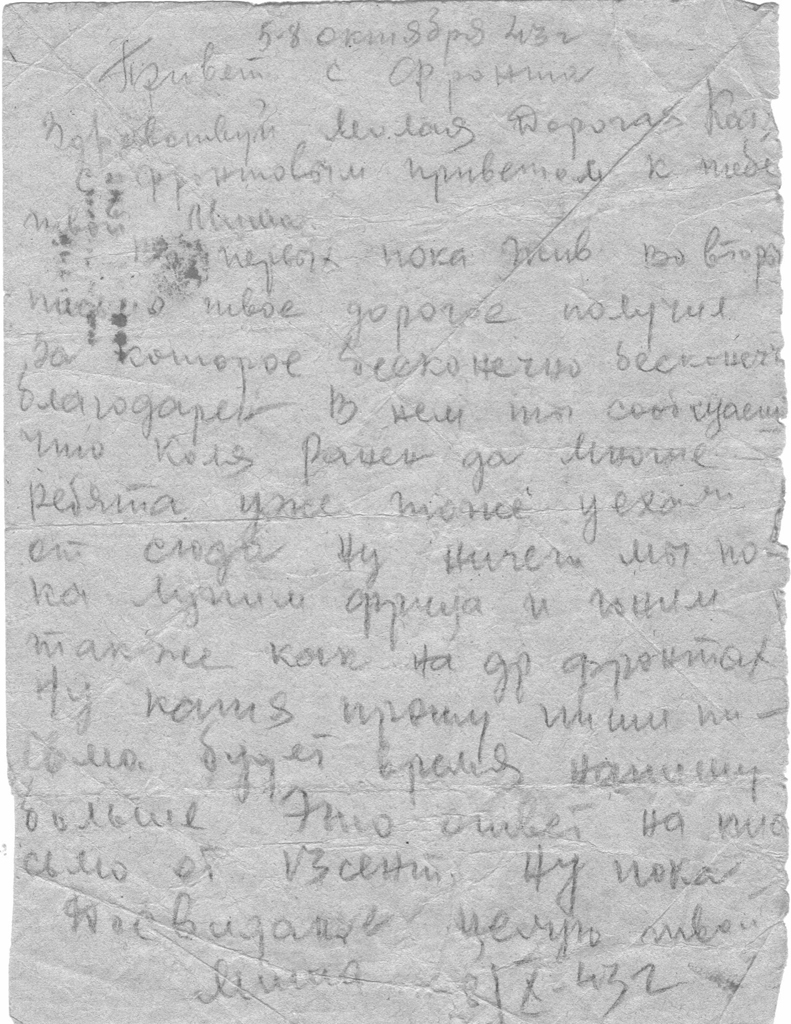 5-8 октября 43 г
Привет с Фронта
Здравствуй Милая Дорогая Катя
с фронтовым приветом к тебе
твой Миша.
Во первых пока жив во вторы
письмо твое дорогое получил
За которое бесконечно бесконечн
благодарен В нем ты сообщаеш
что Коля Ранен да многие
Ребята уже тоже уехали
от сюда Ну ничего мы по-
ка лупим фрица и гоним
также как на др фронтах
Ну катя прошу пиши пи-
сьма будет время напишу
больше Это ответ на пис
сьмо от 13 сент. Ну пока
Досвидание целую твой
Миша 8/X-43 г